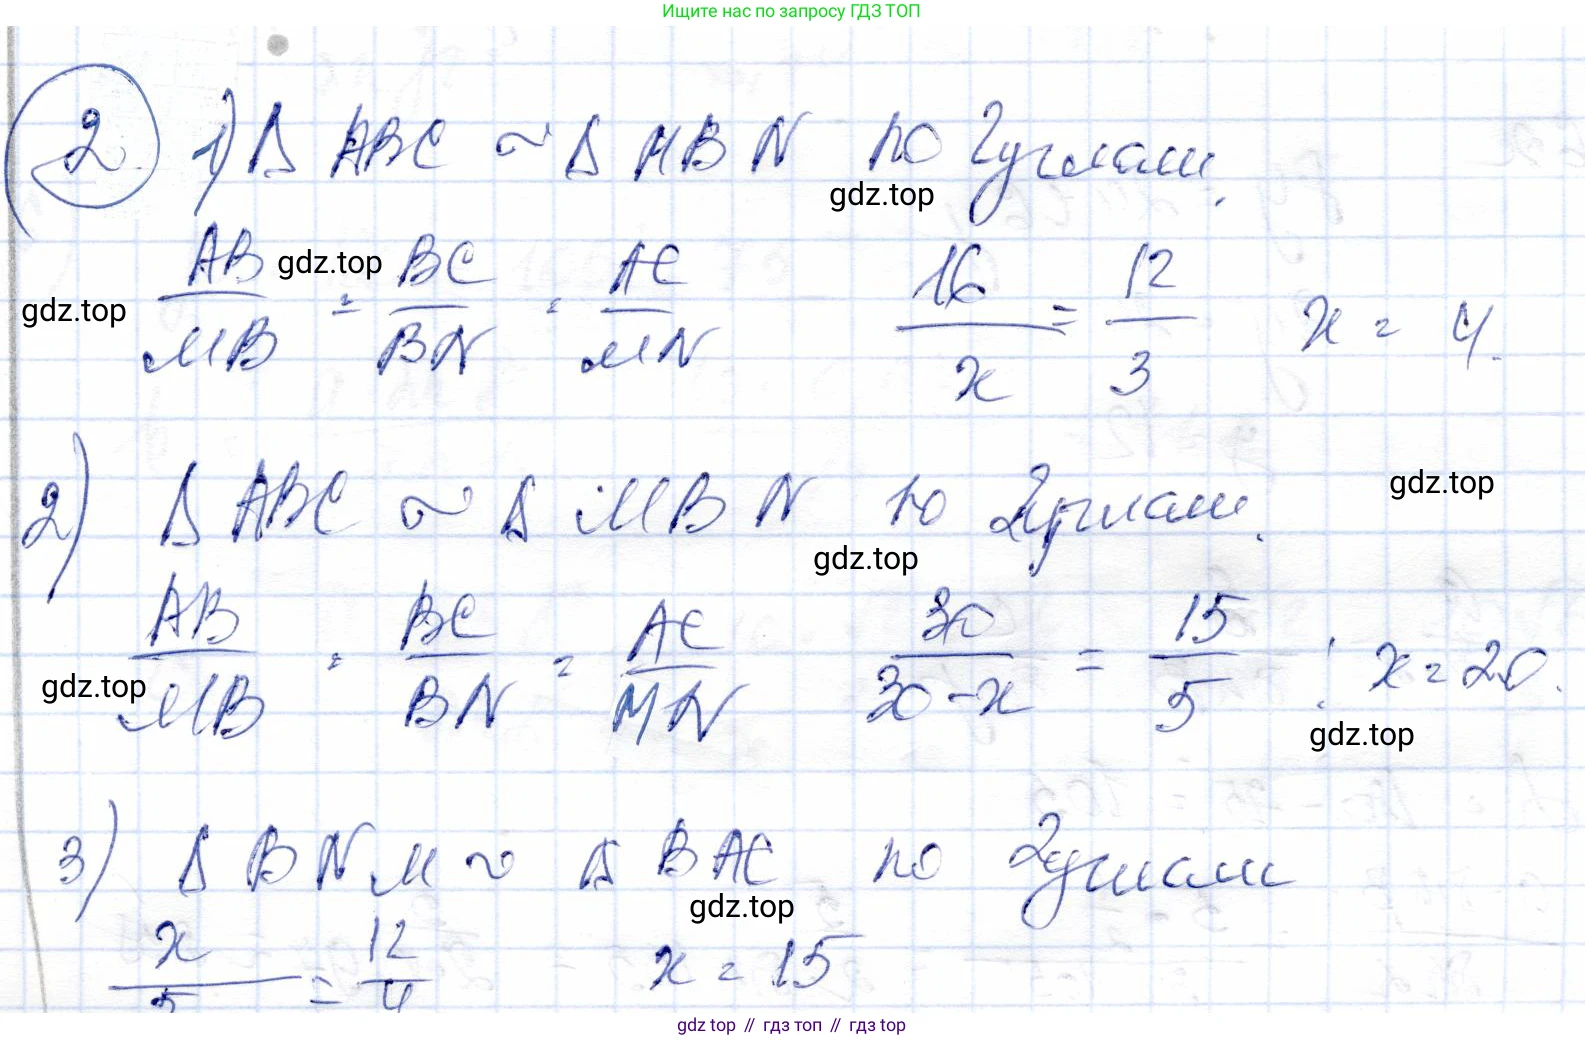 Ищите нас по запросу ГДЗ ТОП
2 1) Δ ABC ~ Δ MBN по 2 углам.
gdz.top
AB/MB = BC/BN = AC/MN 16/x = 12/3 x = 4.
gdz.top
gdz.top
2) Δ ABC ~ Δ MBN по 2 углам.
gdz.top
gdz.top
AB/MB = BC/BN = AC/MN 30/30-x = 15/5 ; x = 20.
gdz.top
gdz.top
3) Δ BNM ~ Δ BAC по 2 углам
gdz.top
x/5 = 12/4 x = 15
gdz top // гдз топ // гдз top